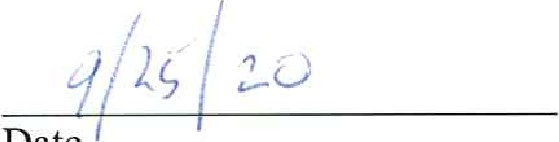 9/25/20
Date